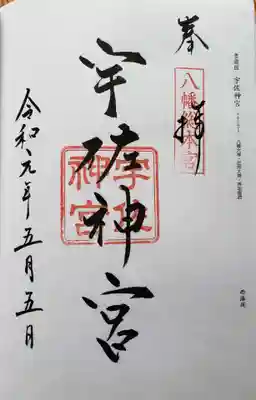 宇佐神宮
奉拝
八幡総本宮
宇佐神宮
宇佐神宮
令和元年五月五日